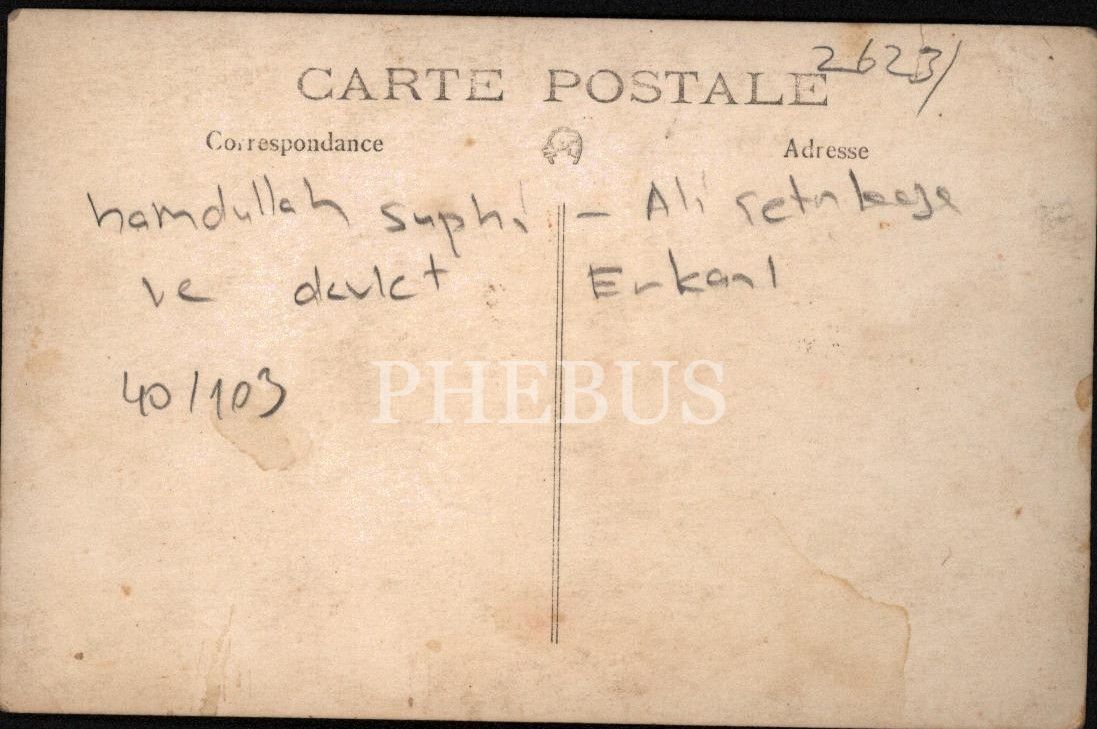 CARTE POSTALE
2623/
Correspondance
Adresse
hamdullah suphi - Ali
ve devlet Erkanı
40/103
PHEBUS